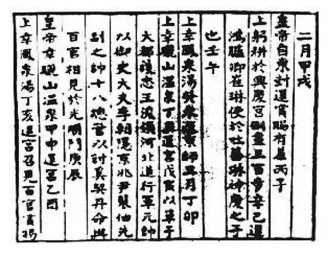 二月甲戌
皇帝自東封還賞賜有差丙子
上躬耕於興慶宮側盡三百步辛巳還
鴻臚卿崔琳使於吐蕃琳神慶之子
也壬午
上幸鳳泉湯癸未還京師三月丁卯
上幸驪山溫泉丁巳還宮戊寅以單于
大都護忠王浚領河北道行軍元帥
以御史大夫李朝隱京兆尹裴伷先
副之帥十八總管以討奚契丹命與
百官相見於光順門庚辰
皇帝幸驪山溫泉甲申還宮乙酉
上幸鳳泉湯丁亥還宮召見百官賞